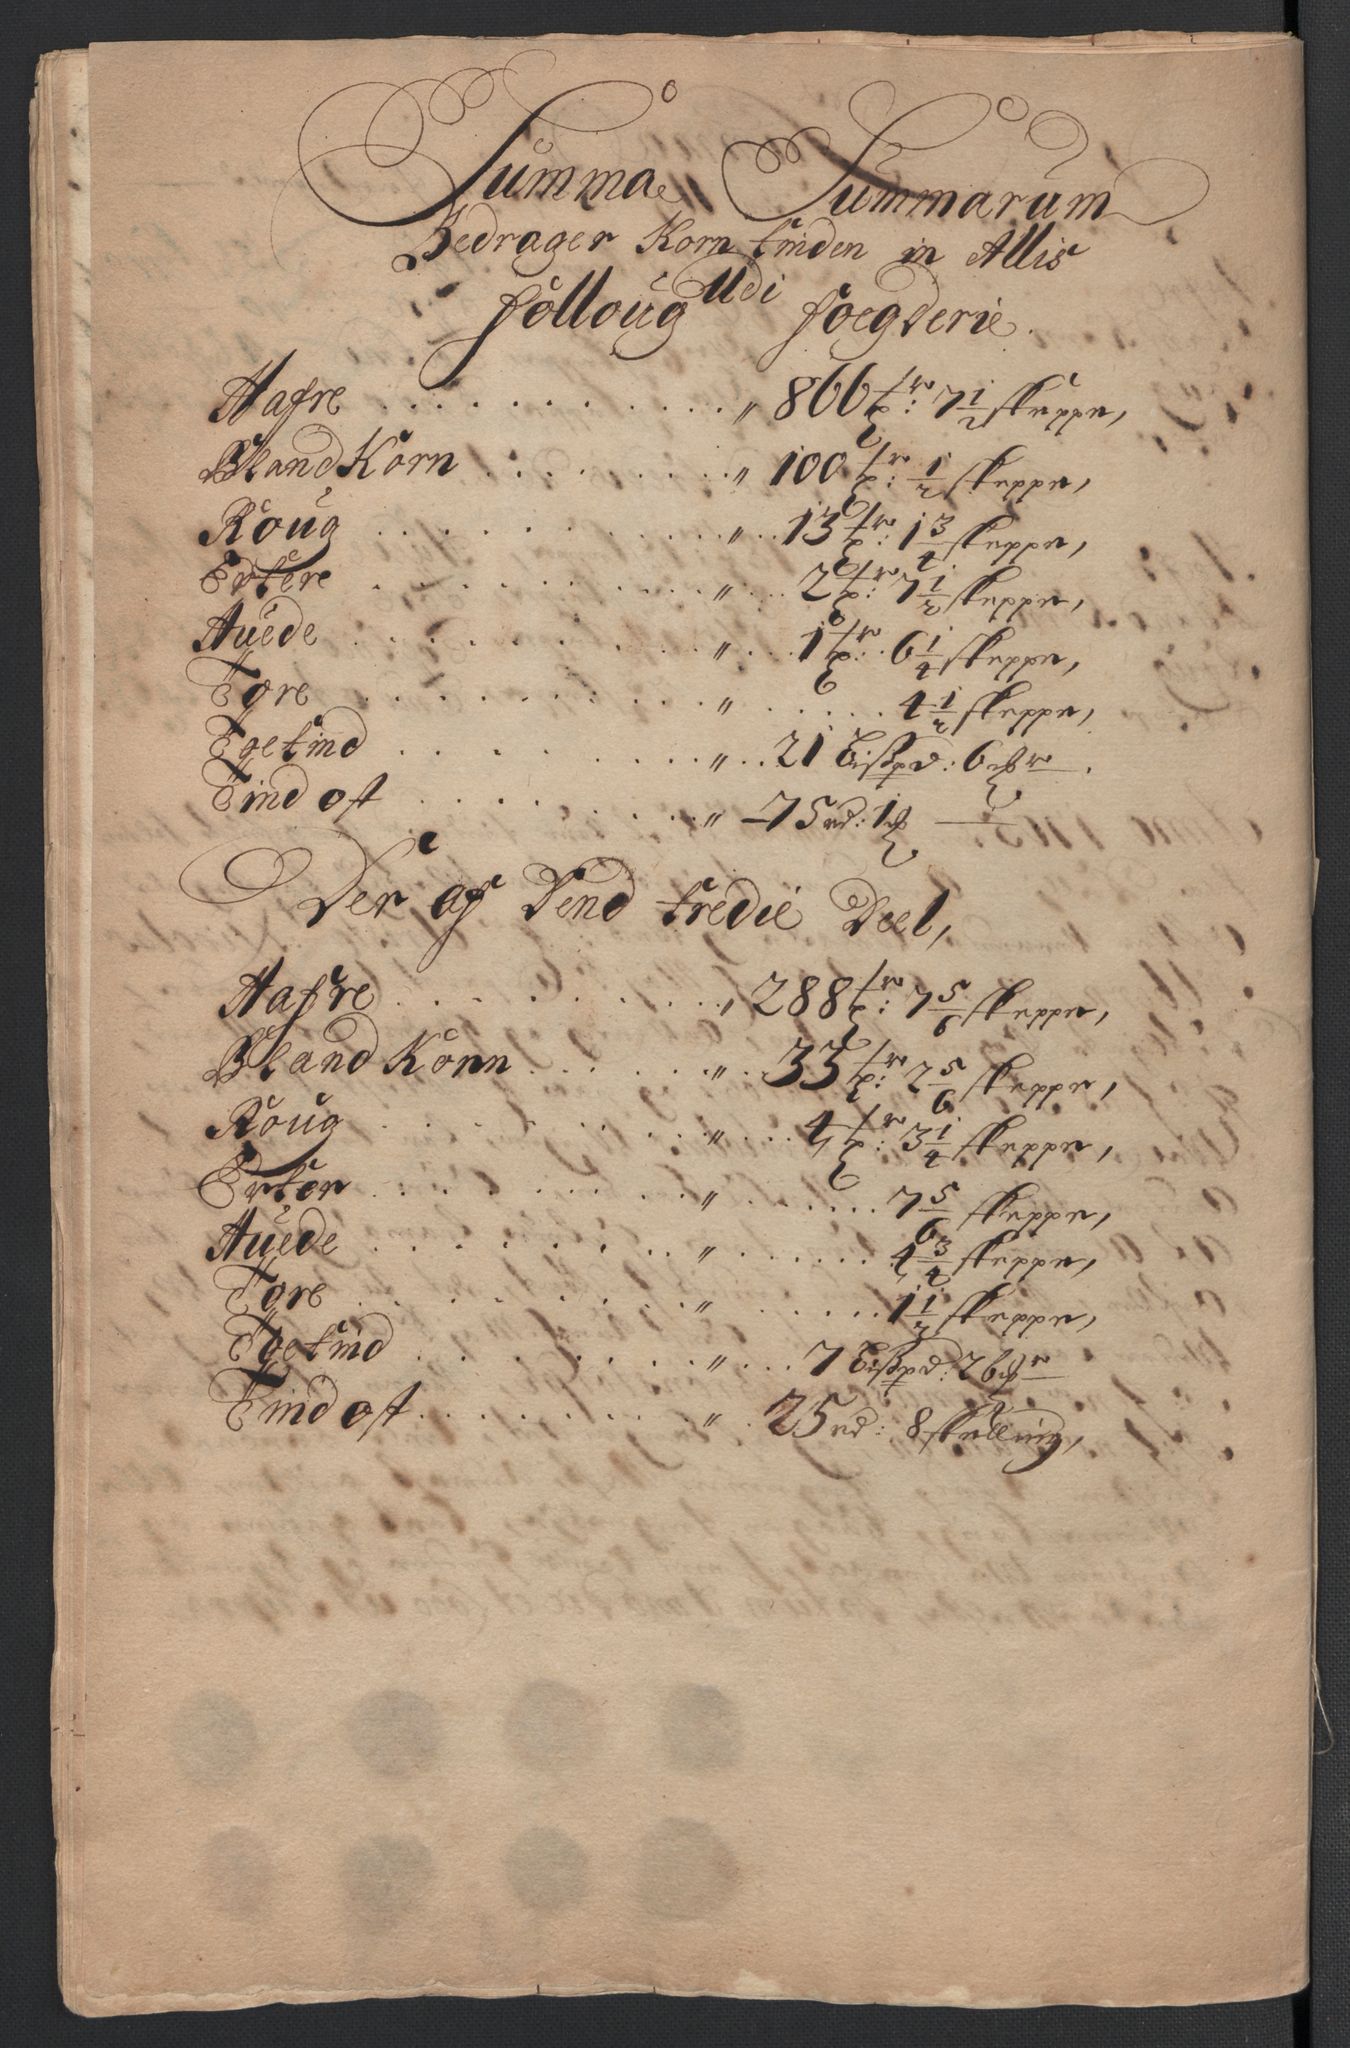 Summa Summarum
Bedrager Korn tinden in Alles
Udi
folloug foegderie.
Hafre . . . . . . . . . . . " 866 tr: 7 1/2 skeppr,
Bland Korn . . . . . . . . " 100 tr: 1/2 skeppr,
Roug . . . . . . . . . . . " . . 13 tr: 1 3/4 skeppr,
Ertere . . . . . . . . . . . " . . . 2 tr: 7 1/2 skeppr,
Huede . . . . . . . . . . . " . . . 1 tr: 6 1/4 skeppr,
Fore . . . . . . . . . . " . . . . . . 4 1/2 skeppr,
tind . . . . . . . . . . " . . 21 Bispd: 6
Tind ost . . . . . . . . " 75 rd: 1
Der af Dend tredie Deel,
Hafre . . . . . . . . . . , 288 tr: 7 5/6 skeppr,
Bland Korn . . . . . . " . . 33 tr: 2 5/6 skeppr,
Roug . . . . . . . . . . " . . . . 4 tr: 3 1/4 skeppr,
Erter . . . . . . . . . . " . . . . . . 7 5/6 skeppr,
Huede . . . . . . . . . . " . . . . . . 4 3/4 skeppr,
Fore . . . . . . . . . . " . . . . . . 1 1/2 skeppr,
tind . . . . . . . . " . . . 7 Bispd: 2
Tind ost . . . . . . . . " . 25 rd: 8 skelling,